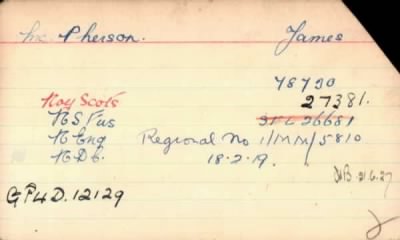 McPherson. James
78790
Roy Scots 27381.
R S Fus 3/L 26681
R Eng Regional No 1/MM/5810
R Db. 18.2.19.
WB. 21.6.27
GP4D.12129